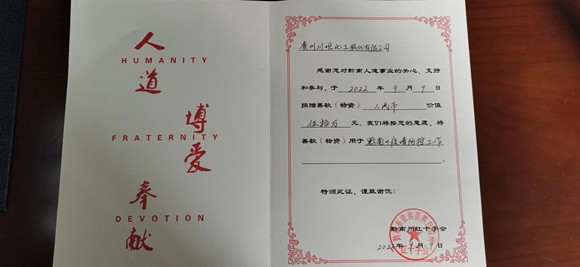 人
HUMANITY
道
博
FRATERNITY
爱
奉
DEVOTION
献
贵州川恒化工股份有限公司
感谢您对黔南人道事业的关心、支持
和参与，于 2022 年 9 月 9 日
捐赠善款（物资） 人民币 价值
伍拾万 元。我们将按您的意愿，将
善款（物资）用于 黔南州疫情防控工作
特颁此证，谨致谢忱！
黔南州红十字会
2022 年 9 月 9 日